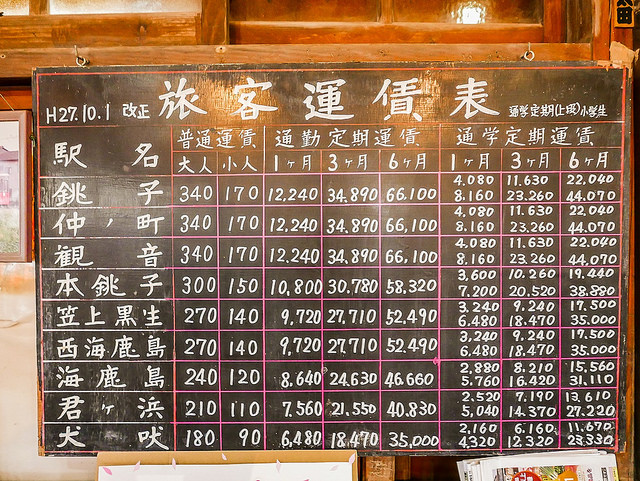 H27.10.1 改正 旅客運賃表 通学定期(上段)小学生
駅名 普通運賃 通勤定期運賃 通学定期運賃
大人 小人 1ヶ月 3ヶ月 6ヶ月 1ヶ月 3ヶ月 6ヶ月
4.080 11.630 22.040
銚子 340 170 12,240 34.890 66,100 8.160 23.260 44.070
4.080 11.630 22.040
仲ノ町 340 170 12,240 34,890 66,100 8.160 23.260 44,070
4.080 11.630 22.040
観音 340 170 12,240 34,890 66,100 8.160 23.260 44,070
3,600 10,260 19.440
本銚子 300 150 10,800 30.780 58,320 7.200 20,520 38.890
3.240 9.240 17.500
笠上黒生 270 140 9,720 27,710 52.490 6.480 18.470 35.000
3.240 9.240 17.500
西海鹿島 270 140 9,720 27.710 52.490 6.480 18.470 35.000
2,880 8.210 15,560
海鹿島 240 120 8,640 24,630 46,660 5.760 16.420 31,110
2.520 7.190 13.610
君ヶ浜 210 110 7,560 21,550 40.830 5,040 14.370 27.220
2,160 6.160 11.670
犬吠 180 90 6,480 18,470 35,000 4320 12.320 23.330